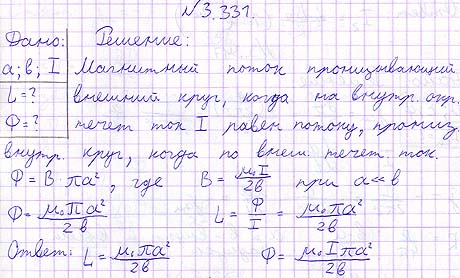 №3.331.
Дано: Решение:
a; в; I Магнитный поток пронизывающий
L=? внешний круг, когда на внутр. окр.
Ф=? течет ток I равен потоку, прониз.
внутр. круг, когда по внеш. течет ток.
Ф = B πa², где B = μ₀I/2в при a≪в
Ф = μ₀Пa²/2в L = Ф/I = μ₀πa²/2в
Ответ: L = μ₀πa²/2в Ф = μ₀Iπa²/2в